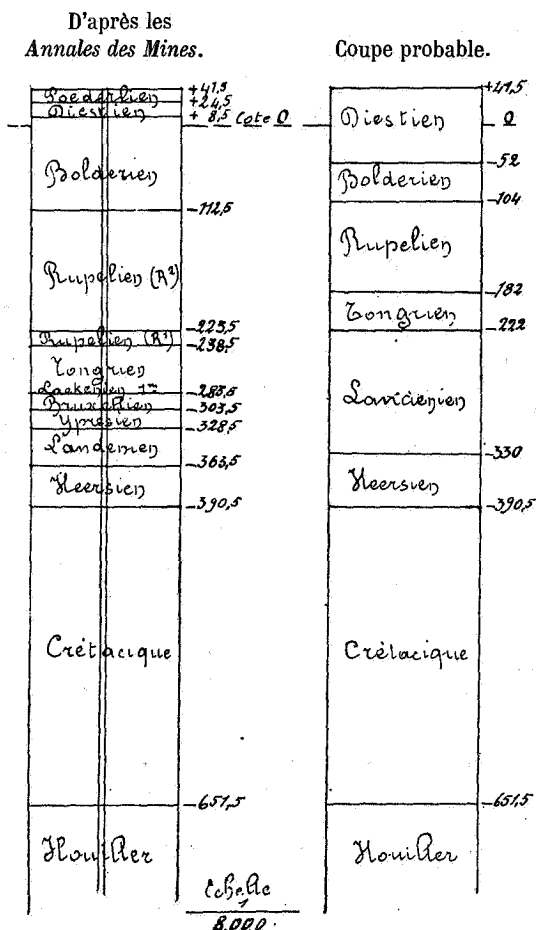 D'après les
Annales des Mines.
+41,5
Poederlien
+24,5
Diestien
+ 8,5 Cote 0
Bolderien
-112,5
Rupelien (R²)
-223,5
Rupelien (R¹)
-238,5
Tongrien
-283,5
Laekenien 1m
Bruxellien
-303,5
Ypresien
-328,5
Landenien
-363,5
Heersien
-390,5
Crétacique
-651,5
Houiller
Echelle
1
8.000
Coupe probable.
+41,5
Diestien
0
-52
Bolderien
-104
Rupelien
-182
Tongrien
-222
Landenien
-330
Heersien
-390,5
Crétacique
-651,5
Houiller